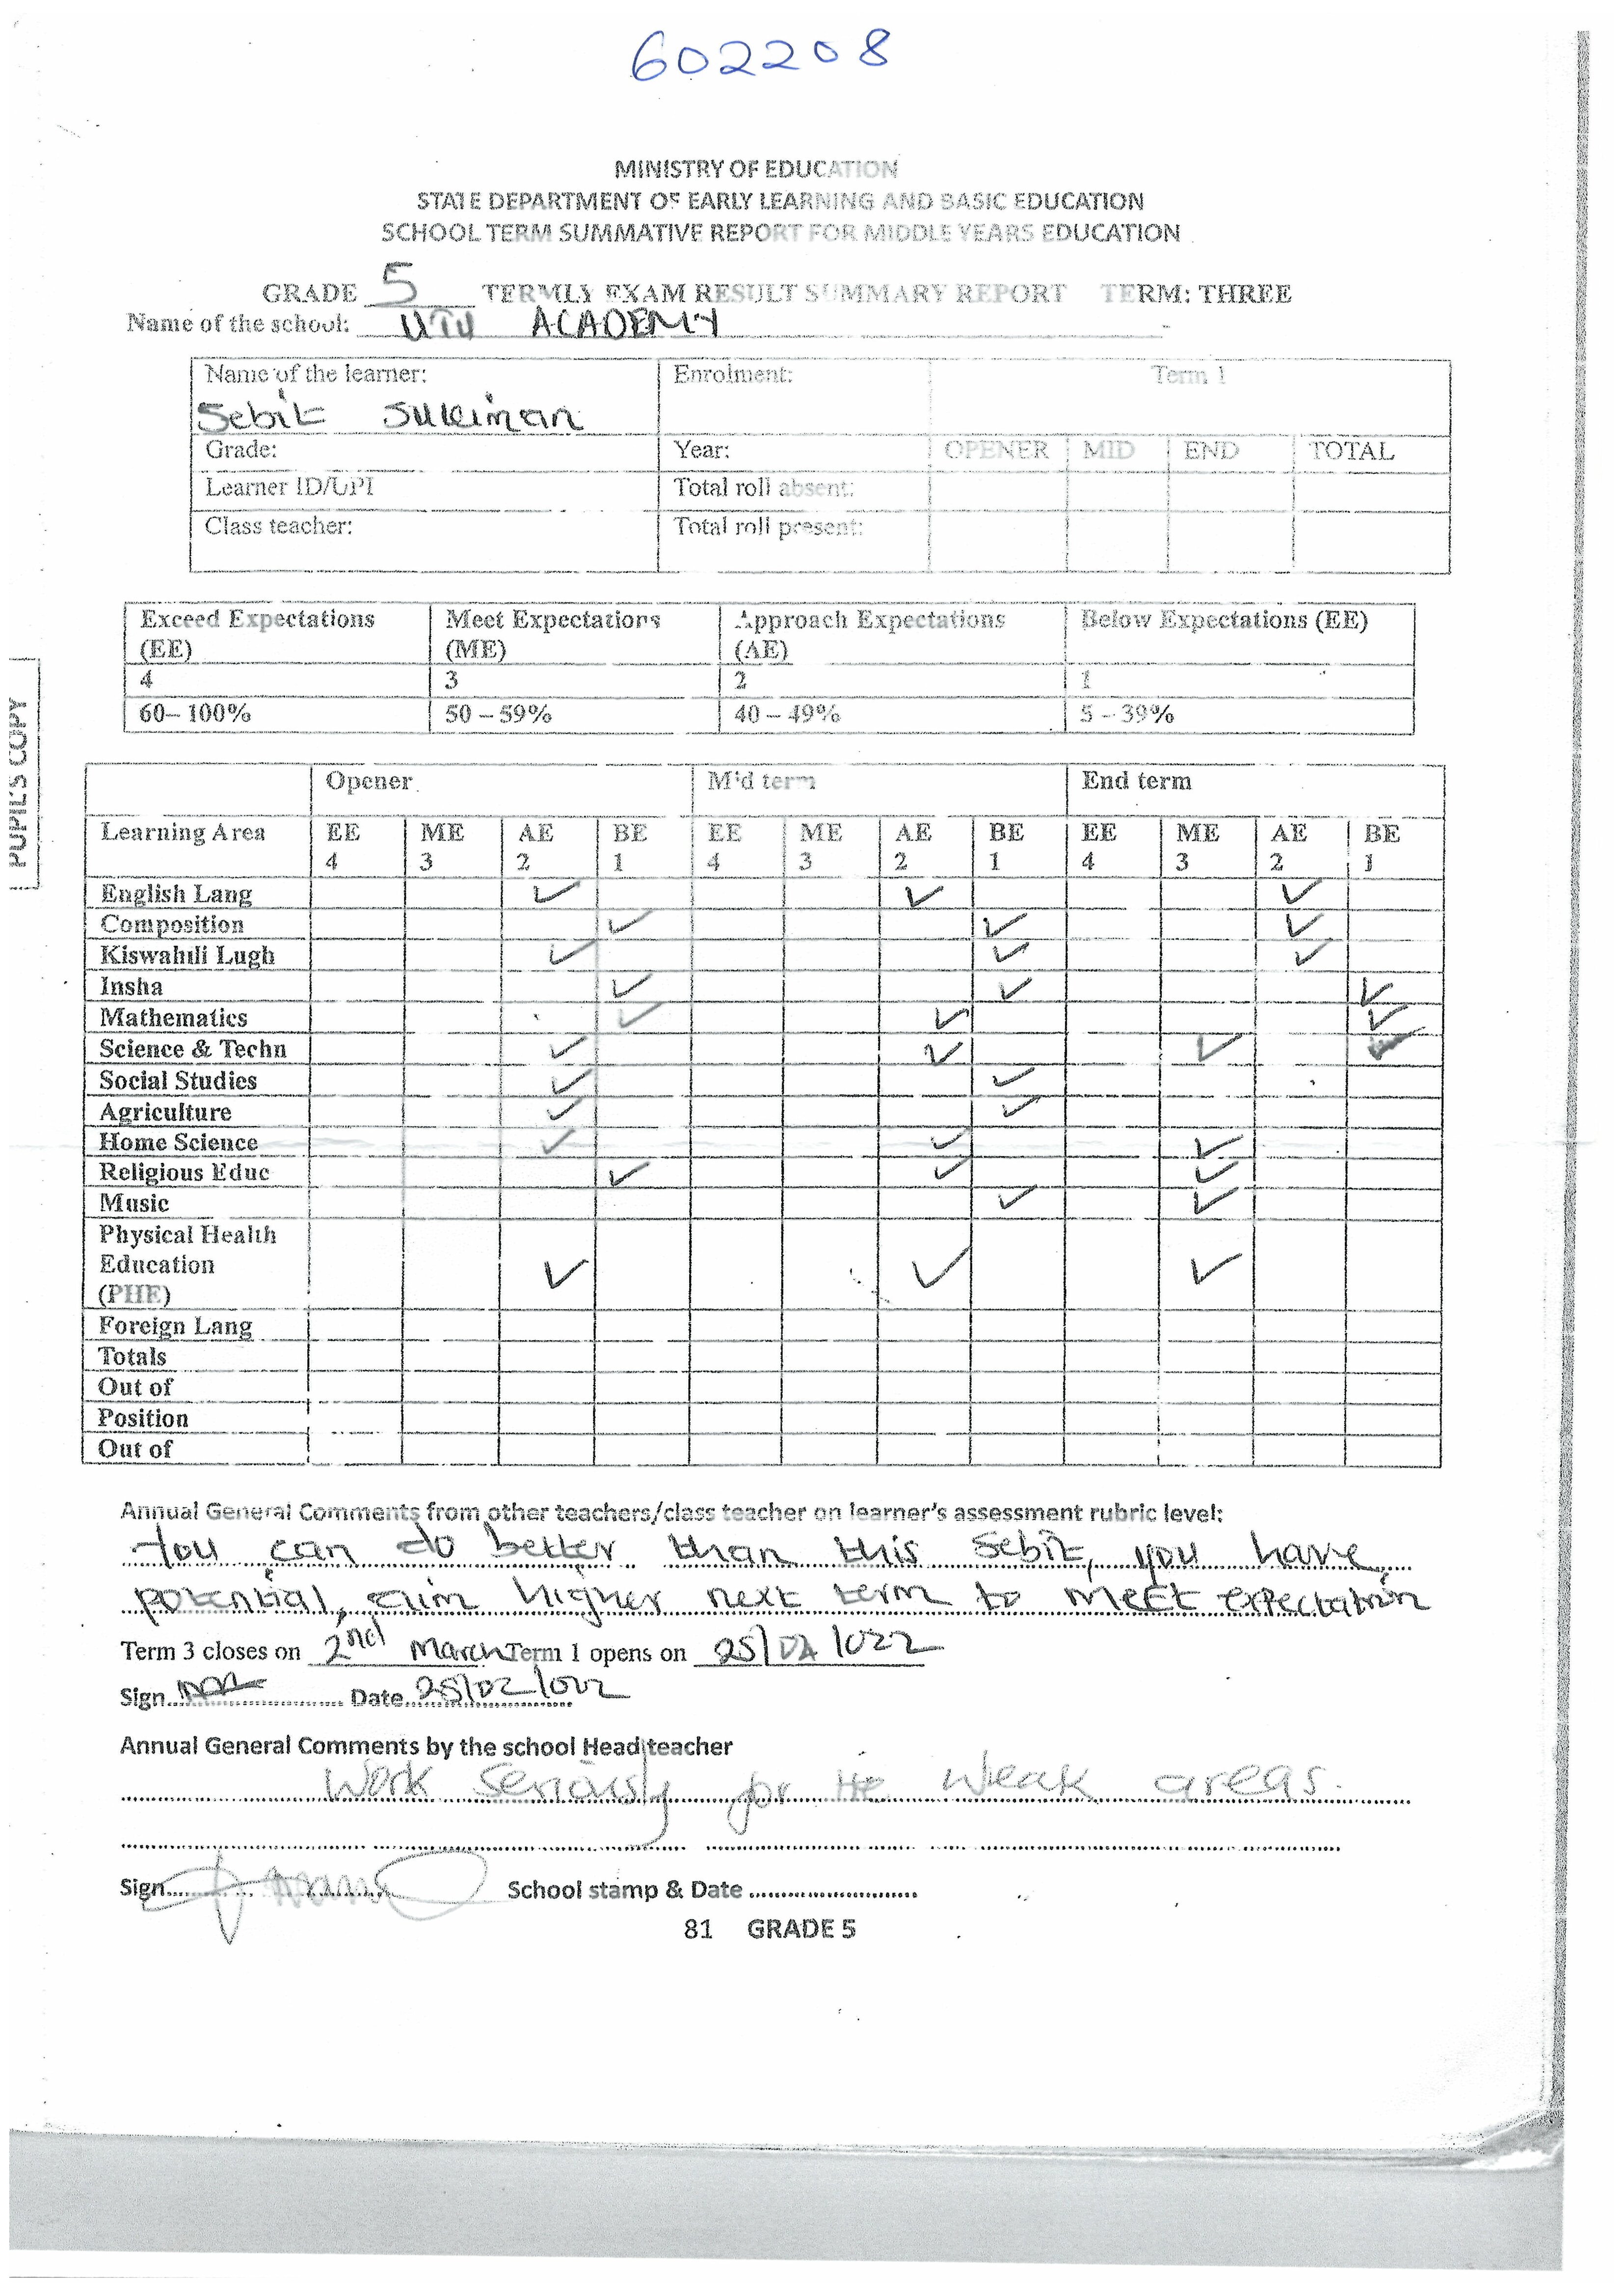 602208
MINISTRY OF EDUCATION
STATE DEPARTMENT OF EARLY LEARNING AND BASIC EDUCATION
SCHOOL TERM SUMMATIVE REPORT FOR MIDDLE YEARS EDUCATION
GRADE 5 TERMLY EXAM RESULT SUMMARY REPORT TERM: THREE
Name of the school: UTU ACADEMY
Name of the learner: Enrolment: Term 1
Sebit Suleiman
Grade: Year: OPENER MID END TOTAL
Learner ID/UPI Total roll absent:
Class teacher: Total roll present:
Exceed Expectations Meet Expectations Approach Expectations Below Expectations (EE)
(EE) (ME) (AE)
4 3 2 1
60– 100% 50 – 59% 40 – 49% 5 – 39%
PUPIL'S COPY
Opener Mid term End term
Learning Area EE ME AE BE EE ME AE BE EE ME AE BE
4 3 2 1 4 3 2 1 4 3 2 1
English Lang ✓ ✓ ✓
Composition ✓ ✓ ✓
Kiswahili Lugh ✓ ✓ ✓
Insha ✓ ✓ ✓
Mathematics ✓ ✓ ✓
Science & Techn ✓ ✓ ✓
Social Studies ✓ ✓
Agriculture ✓ ✓
Home Science ✓ ✓ ✓
Religious Educ ✓ ✓ ✓
Music ✓ ✓
Physical Health
Education ✓ ✓ ✓
(PHE)
Foreign Lang
Totals
Out of
Position
Out of
Annual General Comments from other teachers/class teacher on learner's assessment rubric level:
You can do better than this Sebit, you have
potential, aim higher next term to meet expectation
Term 3 closes on 2nd March Term 1 opens on 25/04/022
Sign Date 25/02/022
Annual General Comments by the school Head teacher
Work seriously for the weak areas.
Sign School stamp & Date
81 GRADE 5